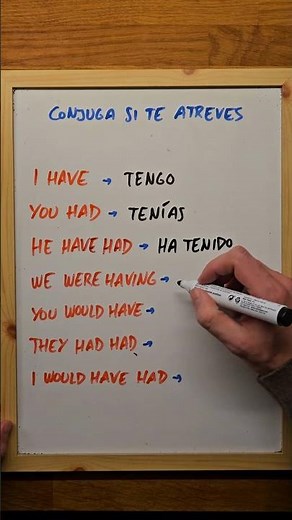 CONJUGA SI TE ATREVES
I HAVE → TENGO
YOU HAD → TENÍAS
HE HAVE HAD → HA TENIDO
WE WERE HAVING →
YOU WOULD HAVE →
THEY HAD HAD →
I WOULD HAVE HAD →